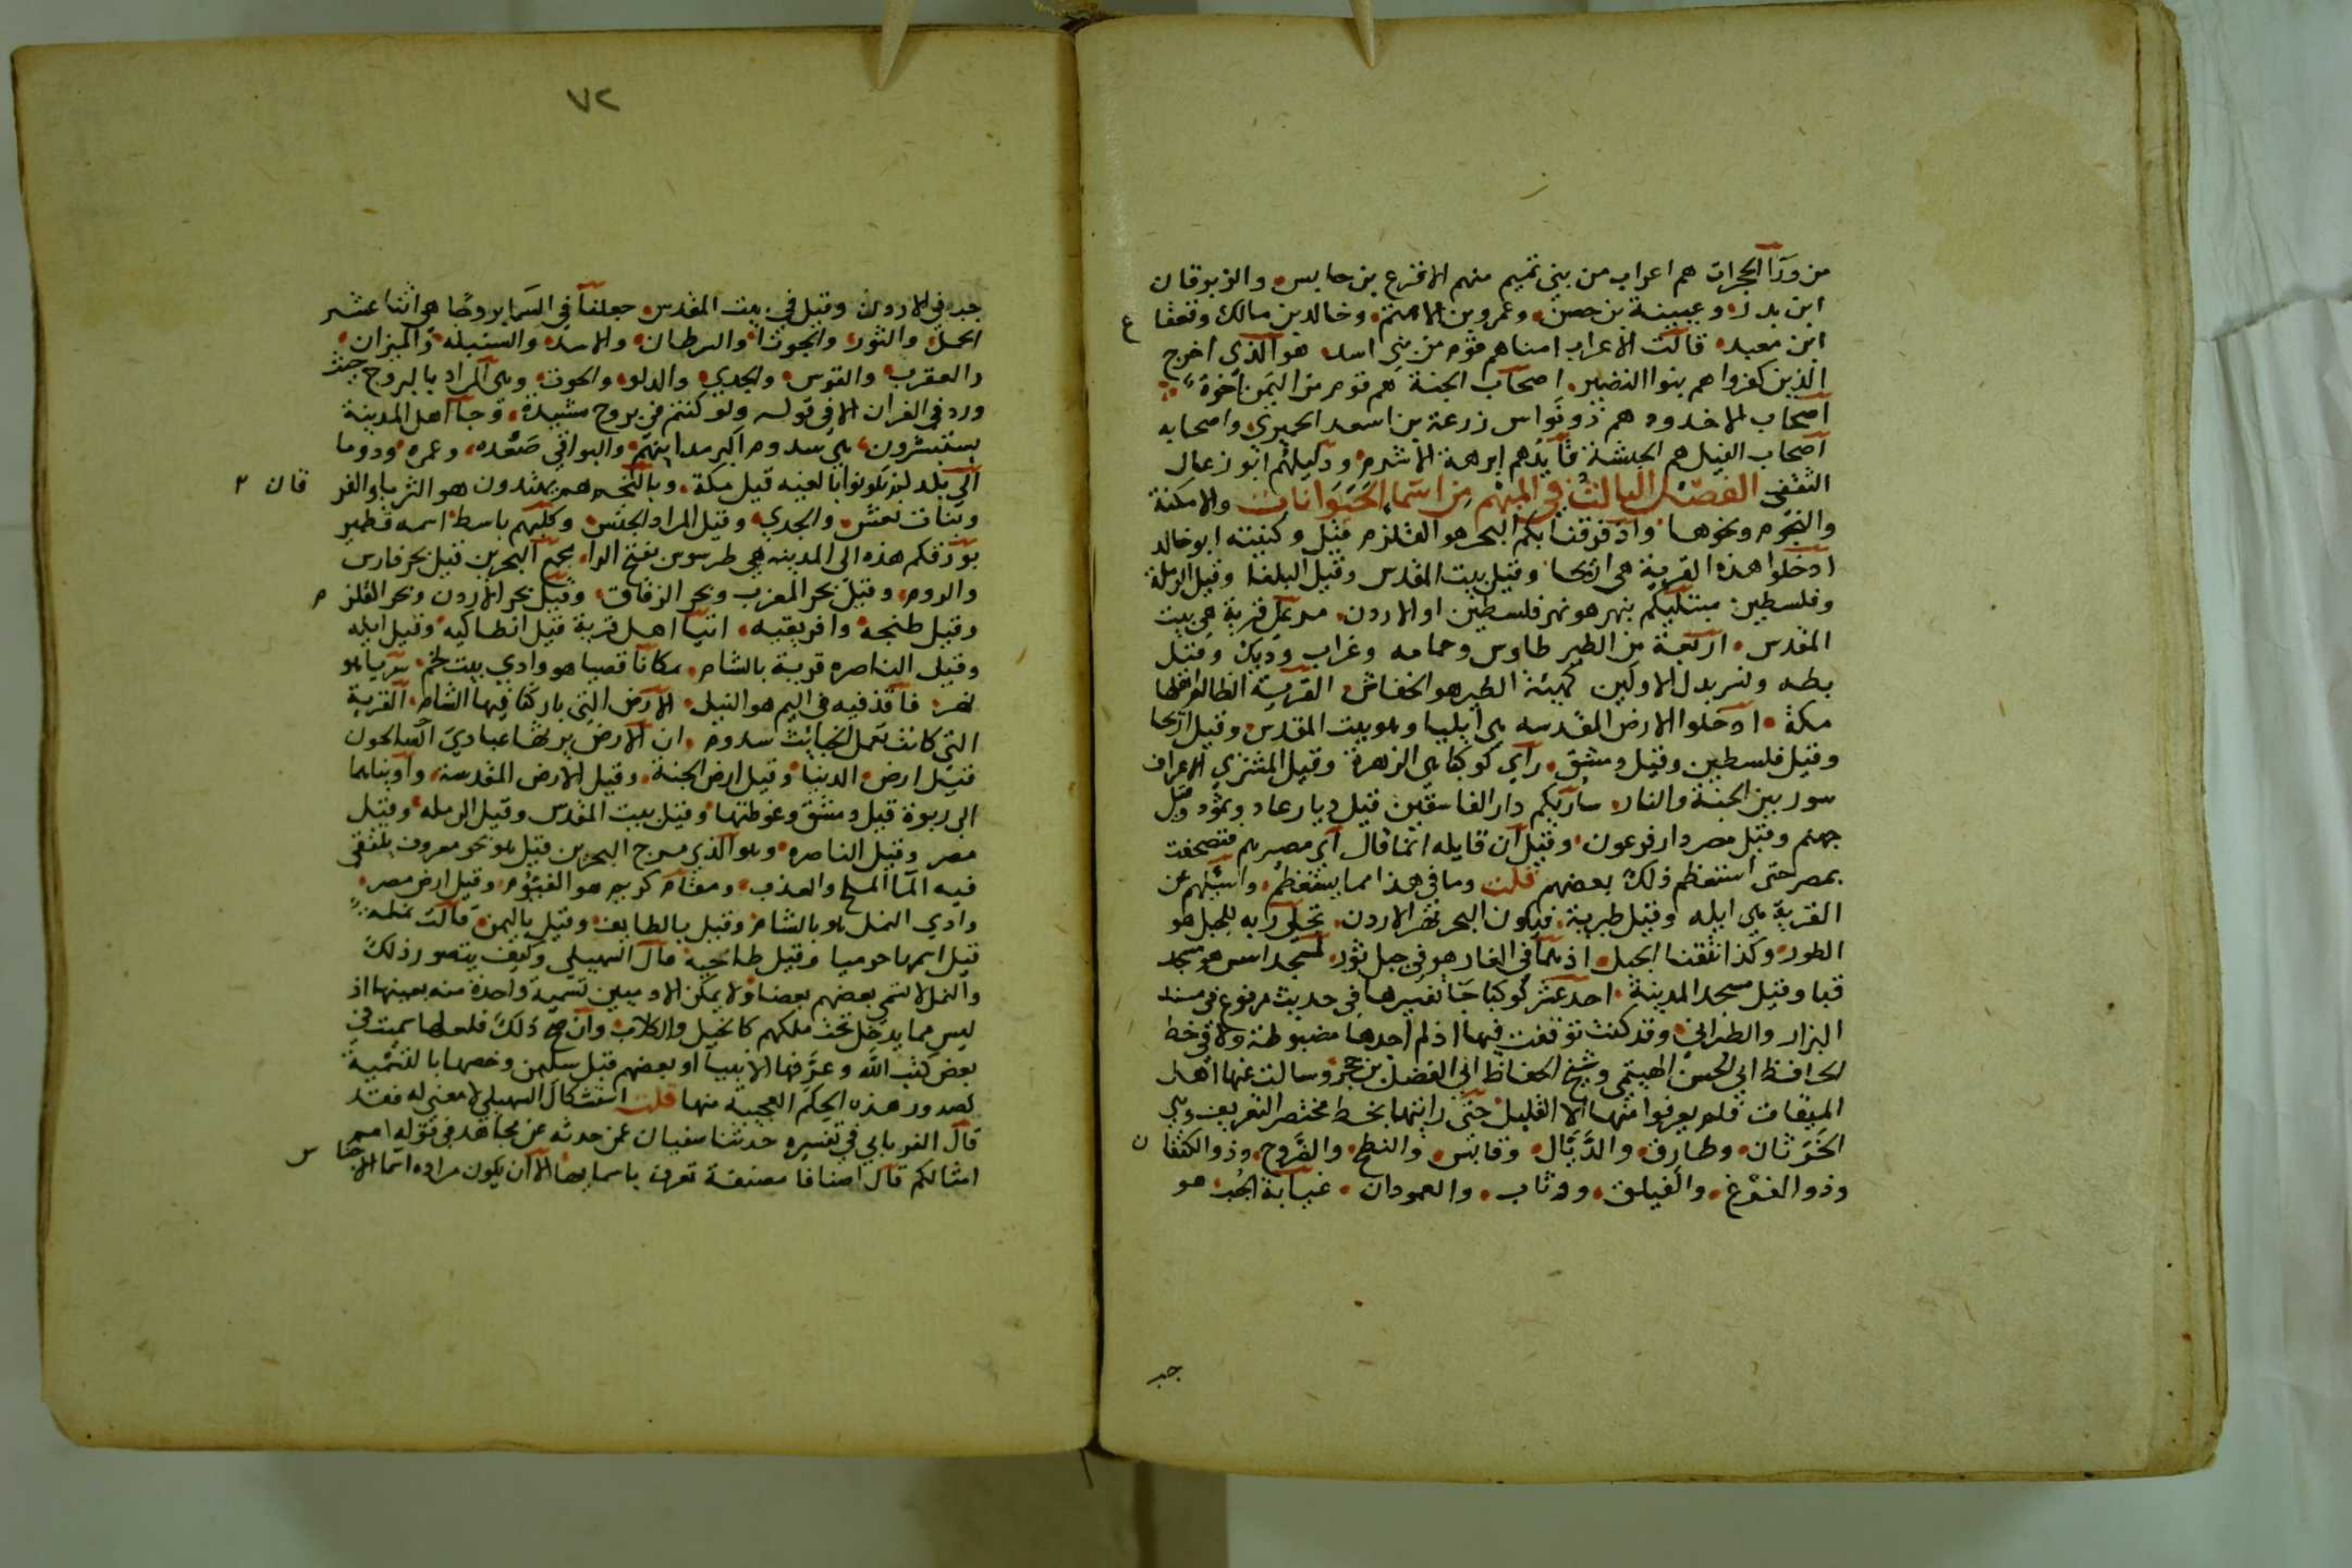 من ورآ الحجرات هم اعراب من بني تميم منهم الاقرع بن حابس والزبرقان
ابن بدر وعيينة بن حصن وعمرو بن الاهتم وخالد بن مالك وقعقا ع
ابن معبد قالت الاعراب امنا هم قوم من بني اسد هو الذي اخرج
الذين كفروا هم بنوا النضير اصحاب الجنة هم قوم من اليمن اخوة
اصحاب الاخدود هم ذو نواس زرعة بن اسعد الحميري واصحابه
اصحاب الفيل هم الحبشة قايدهم ابرهة الاشرم ودليلهم ابو رغال
الثقفي الفصل الثالث في المبهم من اسما الحيوانات والامكنة
والنجوم ونحوها واذ فرقنا بكم البحر هو القلزم قيل وكنيته ابو خالد
ادخلوا هذه القرية هي اريحا وقيل بيت المقدس وقيل البلقا وقيل الرملة
وفلسطين مبتليكم بنهر هو نهر فلسطين او الاردن مر على قرية هي بيت
المقدس اربعة من الطير طاوس وحمامه وغراب وديك وقيل
بطه ونسر بدل الاولين كهيئة الطير هو الخفاش القرية الظالم اهلها
مكة ادخلوا الارض المقدسه هي ايليا وهو بيت المقدس وقيل اريحا
وقيل فلسطين وقيل دمشق راى كوكبا هي الزهرة وقيل المشتري الاعراف
سور بين الجنة والنار ساريكم دار الفاسقين قيل ديار عاد وثمود وقيل
جهنم وقيل مصر دار فرعون وقيل ان قايله انما قال اي مصيرهم فتصحفت
بمصر حتى استعظم ذلك بعضهم قلت وما في هذا مما يستعظم واسئلهم عن
القرية هي ايله وقيل طبرية فيكون البحر نهر الاردن تجلى ربه للجبل هو
الطور وكذا نتقنا الجبل اذ هما في الغار هو في جبل ثور لمسجد اسس هو مسجد
قبا وقيل مسجد المدينة احد عشر كوكبا جا تفسيرها في حديث مرفوع في مسند
البزار والطبراني وقد كنت توقفت فيها اذ لم اجدها مضبوطة ولا في خط
الحافظ ابي الحسن الهيتمي وشيخ الحفاظ ابي الفضل بن حجر وسالت عنها اهل
الميقات فلم يعرفوا منها الا القليل حتى رايتها بخط مختصر التعريف وهي
الخرثان وطارق والذيال وقابس والنطح والضروح وذو الكتفا ن
وذو الفرغ والفيلق ووثاب والعمودان غيابة الجب هو
جب
٧٢
جب في الاردن وقيل في بيت المقدس جعلنا في السما بروجا هي اثنا عشر
الحمل والثور والجوزا والسرطان والاسد والسنبله والميزان
والعقرب والقوس والجدي والدلو والحوت وهي المراد بالبروج حيث
ورد في القران الا في قوله ولو كنتم في بروج مشيدة وجا اهل المدينة
يستبشرون هي سدوم اكبر مداينهم والبواقي صعده وعمره ودوما
الى بلد لم تكونوا بالغيه قيل مكة وبالنجم هم يهتدون هو الثريا والفر قان ٢
وبنات نعش والجدي وقيل المراد الجنس وكلبهم باسط اسمه قطمير
بورقكم هذه الى المدينه هي طرسوس بفتح الرا مجمع البحرين قيل بحر فارس
والروم وقيل بحر المغرب وبحر الزقاق وقيل بحر الاردن وبحر القلز م
وقيل طنجه وافريقيه اتيا اهل قرية قيل انطاكيه وقيل ايله
وقيل الناصره قرية بالشام مكانا قصيا هو وادي بيت لحم سريا هو
نهر فاقذفيه في اليم هو النيل الارض التي باركنا فيها الشام القرية
التي كانت تعمل الخبائث سدوم ان الارض يرثها عبادي الصالحون
قيل ارض الدنيا وقيل ارض الجنة وقيل الارض المقدسة واوينا هما
الى ربوة قيل دمشق وغوطتها وقيل بيت المقدس وقيل الرمله وقيل
مصر وقيل الناصره وهو الذي مرج البحرين قيل هو نحو معروف يلتقي
فيه الما الملح والعذب ومقام كريم هو الفيوم وقيل ارض مصر
وادي النمل هو بالشام وقيل بالطايف وقيل باليمن قالت نمله
قيل اسمها حرميا وقيل طاخيه قال السهيلي وكيف يتصور ذلك
والنمل لا يسمي بعضهم بعضا ولا يمكن الادميين تسمية واحدة منه بعينها اذ
ليس مما يدخل تحت ملكهم كالخيل والكلاب وان صح ذلك فلعلها سميت في
بعض كتب الله وعرفها الانبيا او بعضهم قبل سليمن وخصها بالتسمية
لصدور هذه الحكم العجيبة منها قلت استشكال السهيلي لا معنى له فقد
قال الفريابي في تفسيره حدثنا سفيان عن حدثه عن مجاهد في قوله امم
امثالكم قال اصنافا مصنفة تعرف باسمايها الا ان يكون مراده اسما الاجنا س